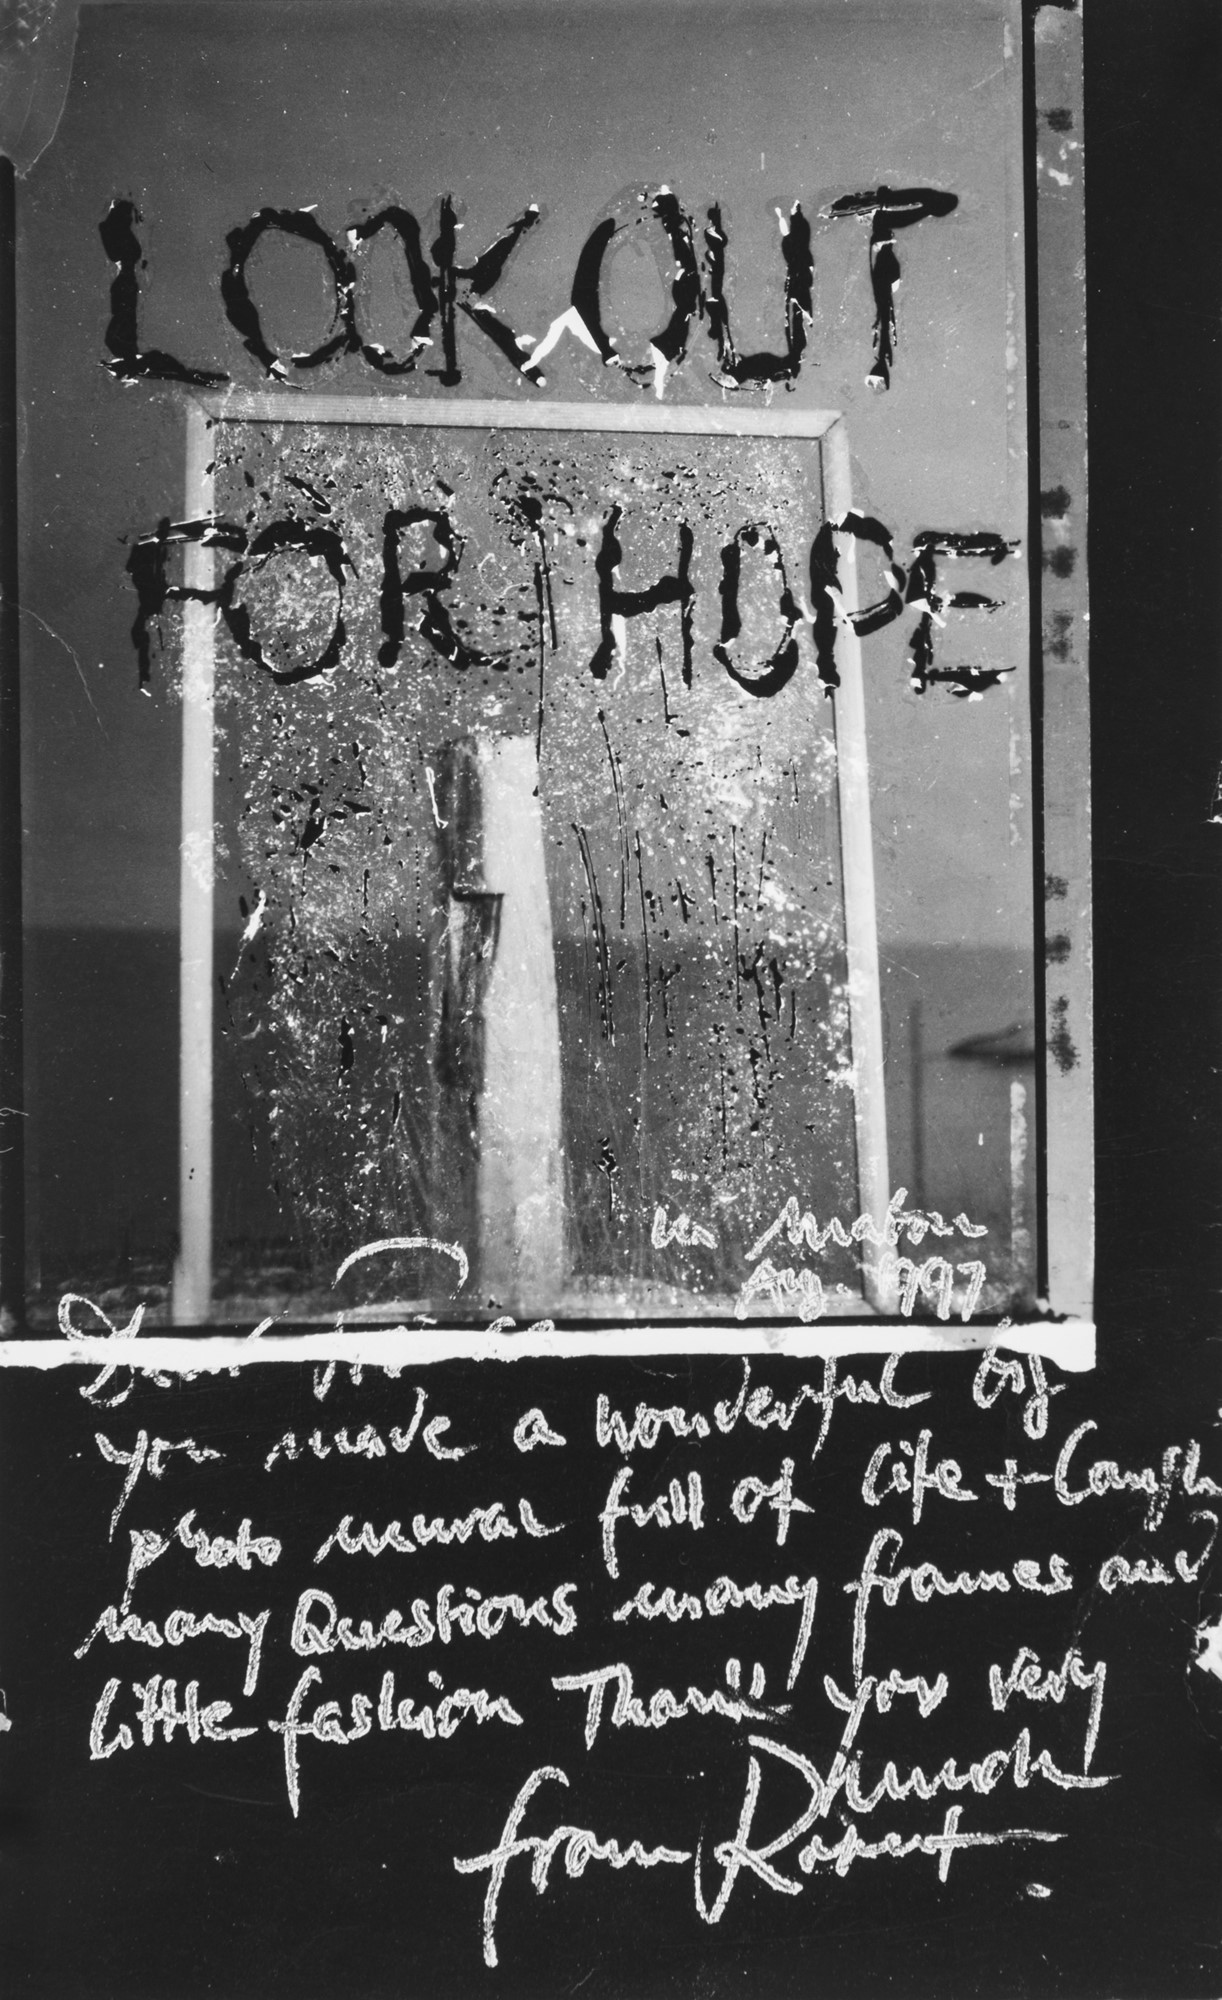 LOOK OUT
FOR HOPE
in
Aug. 1997
Dear
you made a wonderful big
photo mural full of life + Laugh
many Questions many frames and
little fashion Thank you very
much
from Robert